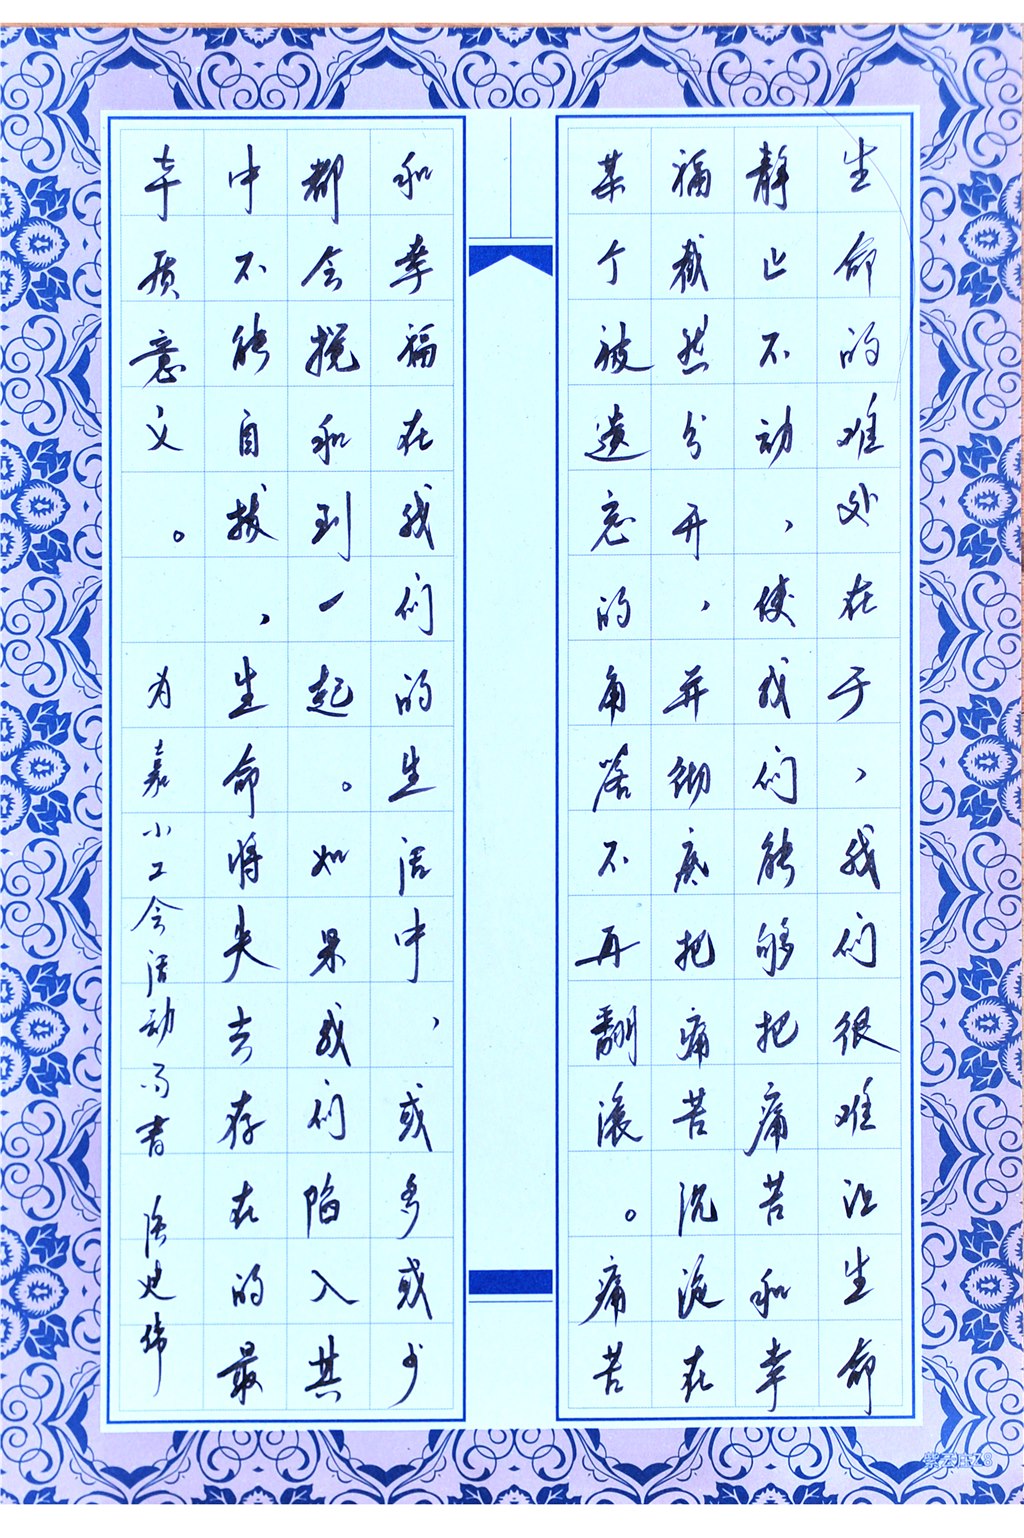 生命的难处在于，我们很难让生命
静止不动，使我们能够把痛苦和幸
福截然分开，并彻底把痛苦沉淀在
某个被遗忘的角落不再翻滚。痛苦
和幸福在我们的生活中，或多或少
都会搅和到一起。如果我们陷入其
中不能自拔，生命将失去存在的最
本质意义。
为嘉小工会活动而书